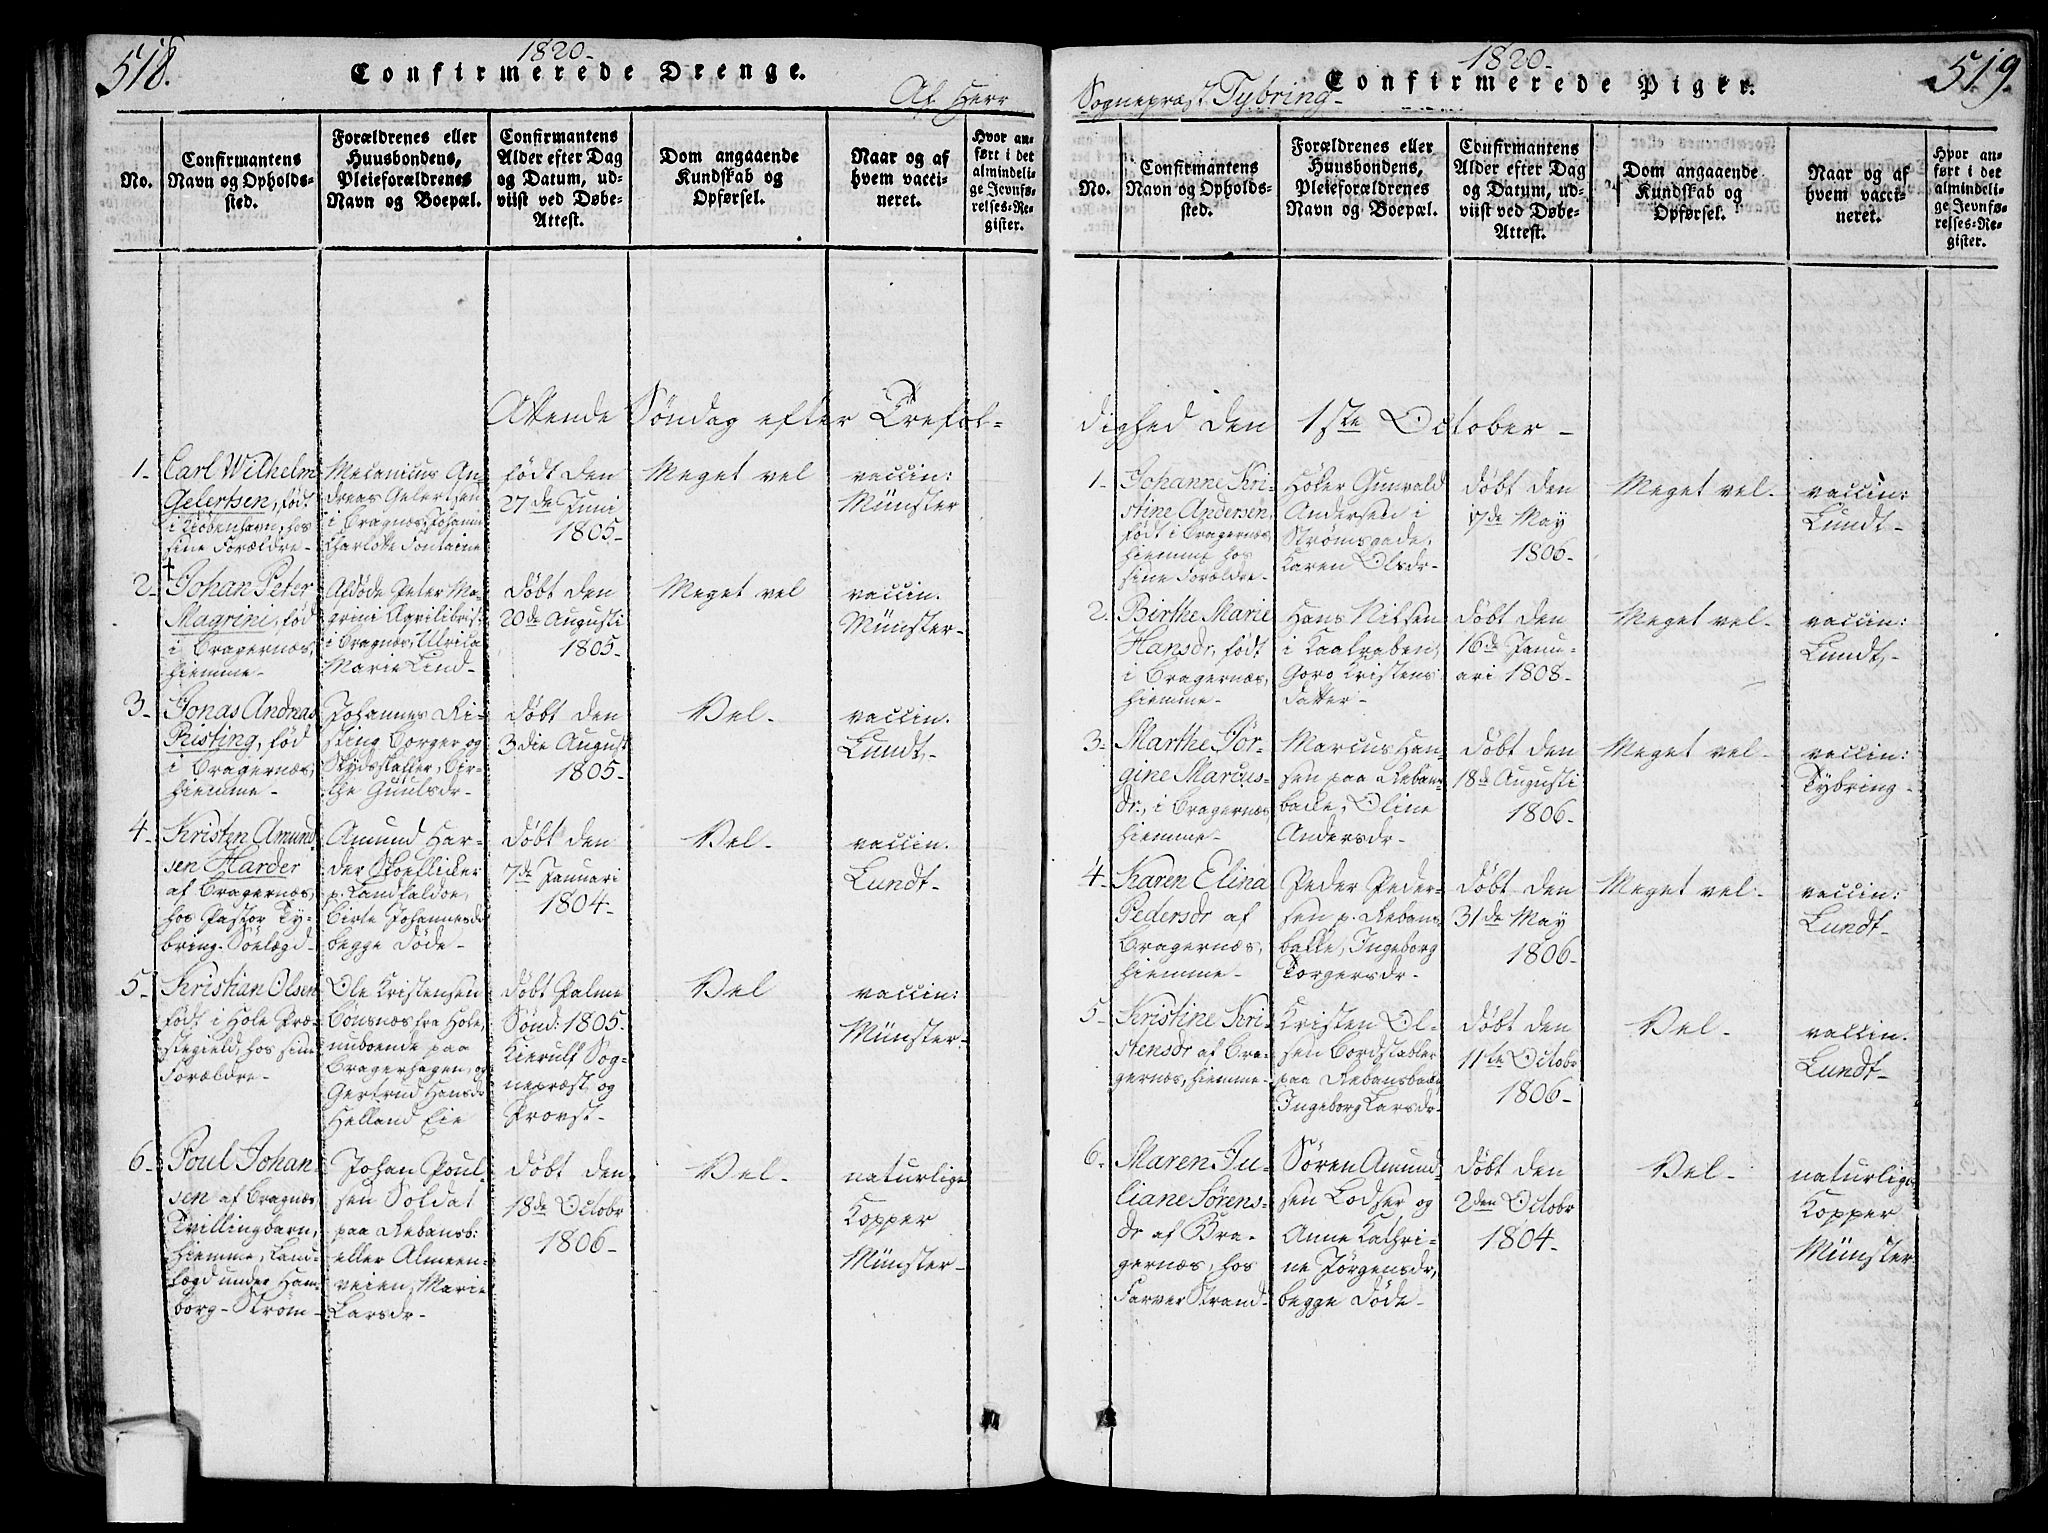 518.
1820-
Confirmerede Drenge.
Af Herr
No.
Confirmantens
Navn og Opholds-
sted.
Forældrenes eller
Huusbondens,
Pleieforældrenes
Navn og Boepæl.
Confirmantens
Alder efter Dag
og Datum, ud-
viist ved Døbe-
Attest.
Dom angaaende
Kundskab og
Opførsel.
Naar og af
hvem vacci-
neret.
Hvor an-
ført i det
almindeli-
ge Jevnfø-
relses-Re-
gister.
Attende Søndag efter Trefol-
1-
Carl Wilhelm
Gelertsen, født
i Kiøbenhavn, hos
sine Forældre-
Mecanicus An-
dreas Gelertsen
i Bragnæs, Johanne
Charlotte Fontaine
født den
27de Juni
1805-
Meget vel
vaccin:
Münster
2-
Johan Peter
Magrini, fød
i Bragernæs,
hiemme-
Afdøde Peter Ma-
grini
i Bragnæs, Ulrica
Marie Lind-
døbt den
20de Augusti
1805-
Meget vel
vaccin.
Münster-
3-
Jonas Andreas
Risting, fød
i Bragernæs,
hiemme-
Johannes Ri-
sting Borger og
Skydsskaffer, Bir-
the Guulsdr-
døbt den
3die August
1805-
Vel-
vaccin.
Lundt-
4-
Kristen Amund
sen Harder
af Bragernæs,
hos Pastor Ty-
bring. Søelægd-
Amund Har-
der Skoeflicker
p. Landfaldøe,
Birte Johannesdr
begge døde-
døbt den
7de Januari
1804-
Vel-
vaccin.
Lundt-
5-
Kristian Olsen
født i Hole Præ-
stegield, hos sine
Forældre-
Ole Kristensen
Bønsnæs fra Hole,
nuboende paa
Bragerhagen, og
Gertrud Hansdr
Helland Eie
døbt Palme
Sønd: 1805-
Kierulf Sog-
nepræst og
Provst-
Vel
vaccin:
Münster-
6-
Poul Johan-
sen af Bragnæs
Tvillingbarn,
hiemme, Land-
lægd under Ham-
borg-Strøm-
Johan Poul-
sen Soldat
paa Rebansb:
eller Almeen-
veien, Marie
Larsdr-
døbt den
18de Octobr
1806-
Vel-
naturlige
Kopper
Münster-
519.
1820-
Confirmerede Piger.
Sognepræst Tybring-
No.
Confirmantens
Navn og Opholds-
sted.
Forældrenes eller
Huusbondens,
Pleieforældrenes
Navn og Boepæl.
Confirmantens
Alder efter Dag
og Datum, ud-
viist ved Døbe-
Attest.
Dom angaaende
Kundskab og
Opførsel.
Naar og af
hvem vacci-
neret.
Hvor an-
ført i det
almindeli-
ge Jevnfø-
relses-Re-
gister.
dighed den 1ste October-
1-
Johanne Kri-
stine Andersen,
født i Bragernæs,
hiemme hos
sine Forældre-
Høker Gunvald
Andersen i
Strømsgade,
Karen Olsdr-
døbt den
17de May
1806-
Meget vel-
vaccin:
Lundt-
2-
Birthe Marie
Hansdr, født
i Bragernæs,
hiemme-
Hans Nilsen
i Kaalraben,
Goro Kristens
datter-
døbt den
16de Janu-
ari 1808-
Meget vel-
vaccin:
Lundt-
3-
Marthe Jør-
gine Marcus-
dr, i Bragernæs
hiemme-
Marcus Han-
sen paa Rebans-
bakke, Oline
Andersdr-
døbt den
18de Augusti
1806-
Meget vel-
vaccin:
Tybring-
4-
Karen Elina
Pedersdr af
Bragernæs,
hiemme-
Peder Peder-
sen p. Rebans-
bakke, Ingeborg
Torgersdr-
døbt den
31de May
1806-
Meget vel-
vaccin:
Lundt-
5-
Kristine Kri-
stensdr af Bra-
gernæs, hiemme-
Kristen Ol-
sen Bordstabler
paa Rebansbakke
Ingeborg Larsdr-
døbt den
11te Octobr
1806-
Vel-
vaccin.
Lundt-
6-
Maren Ju-
liane Sørens-
dr af Bra-
gernæs, hos
Farver Strand-
Søren Amund-
sen Lodser og
Anne Kathri-
ne Jørgensdr,
begge døde-
døbt den
2den Octobr
1804-
Vel-
naturlige
Kopper
Münster